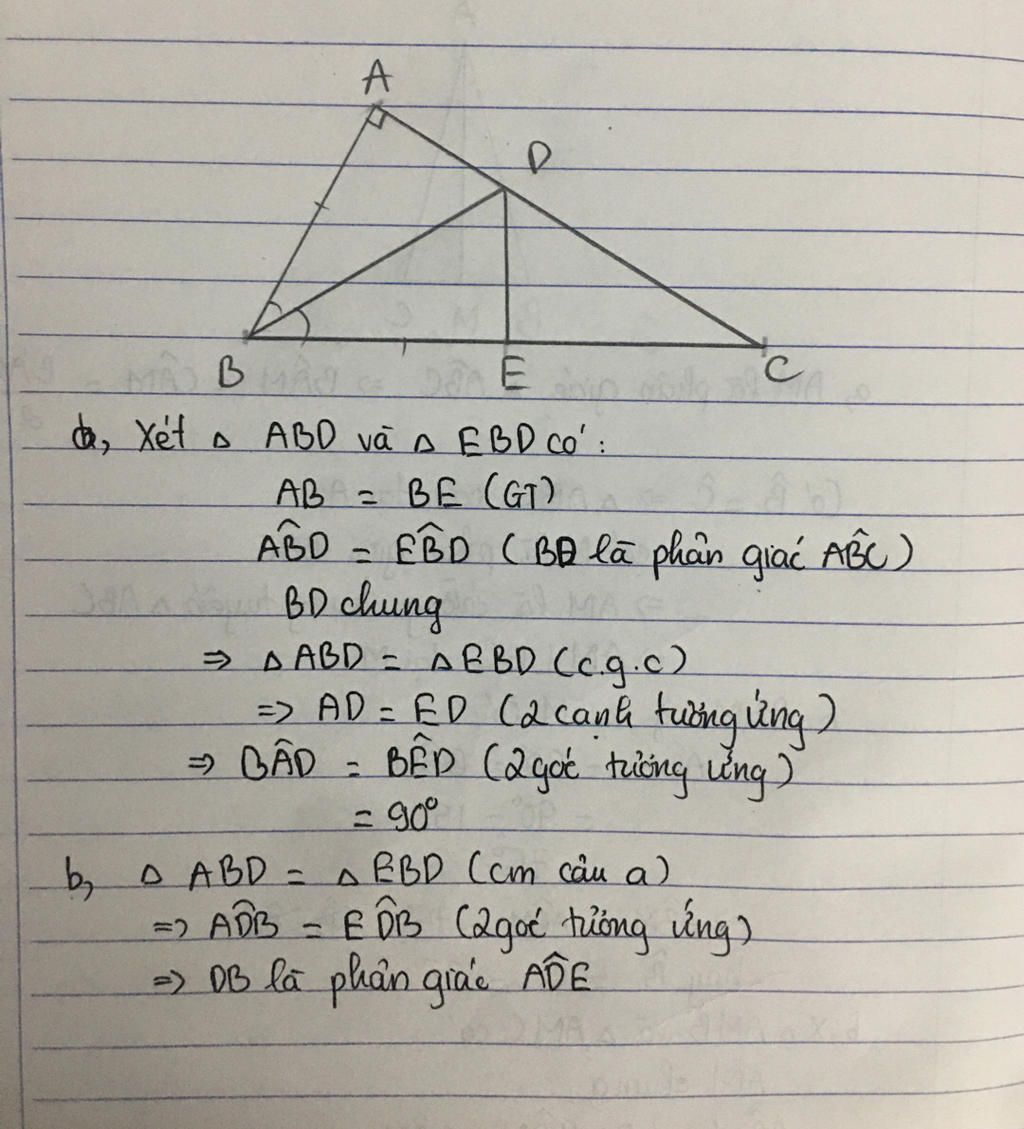 A
D
B
E
C
a, Xét △ ABD và △ EBD có:
AB = BE (GT)
AB̂D = EB̂D (BD là phân giác AB̂C)
BD chung
⇒ △ABD = △EBD (c.g.c)
=> AD = ED (2 cạnh tương ứng)
⇒ BÂD = BÊD (2 góc tương ứng)
= 90°
b, △ ABD = △ EBD (cm câu a)
=> AD̂B = ED̂B (2 góc tương ứng)
=> DB là phân giác AD̂E